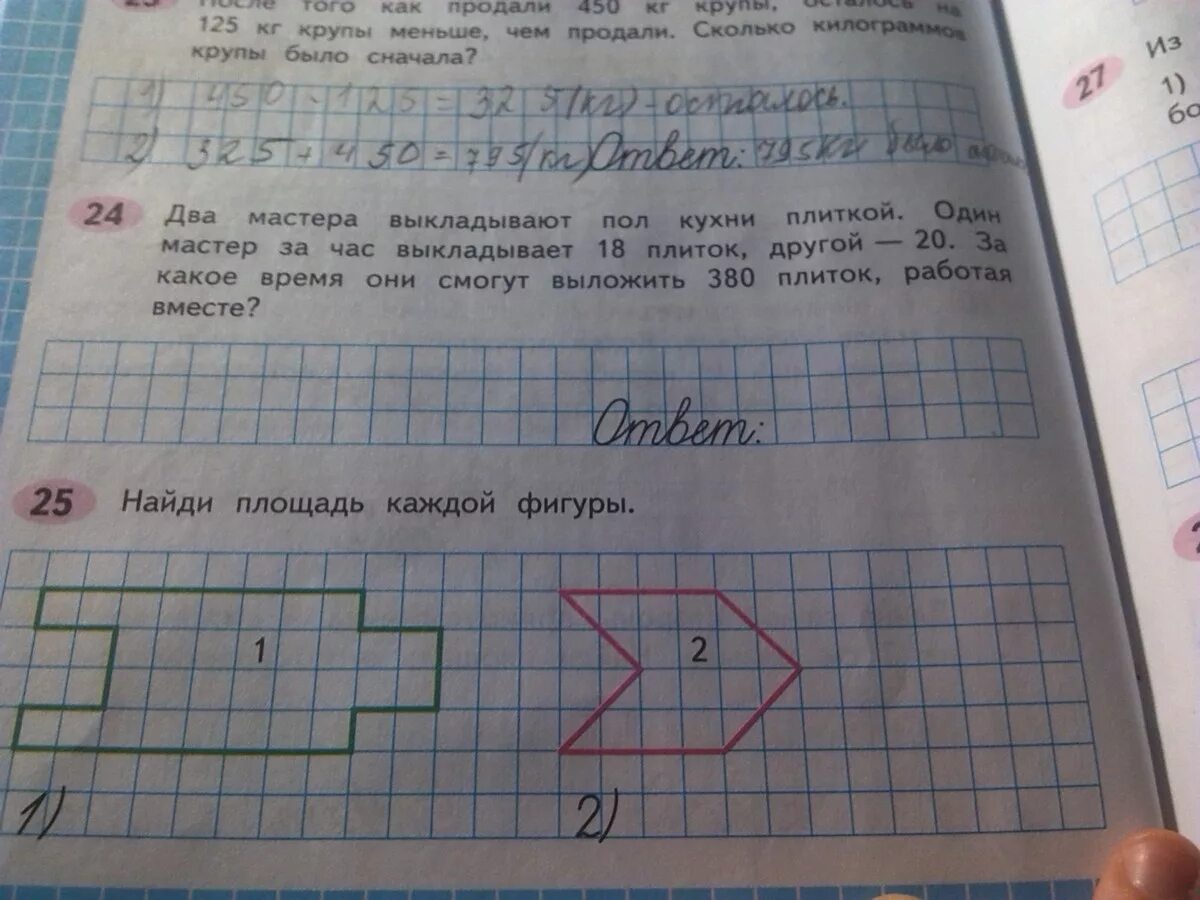 После того как продали 450 кг крупы, осталось на
125 кг крупы меньше, чем продали. Сколько килограммов
крупы было сначала?
1) 450 - 125 = 325 (кг) - осталось.
2) 325 + 450 = 795 (кг) Ответ: 795 кг было
24 Два мастера выкладывают пол кухни плиткой. Один
мастер за час выкладывает 18 плиток, другой — 20. За
какое время они смогут выложить 380 плиток, работая
вместе?
Ответ:
25 Найди площадь каждой фигуры.
1 2
1) 2)
27 Из
1)
бо